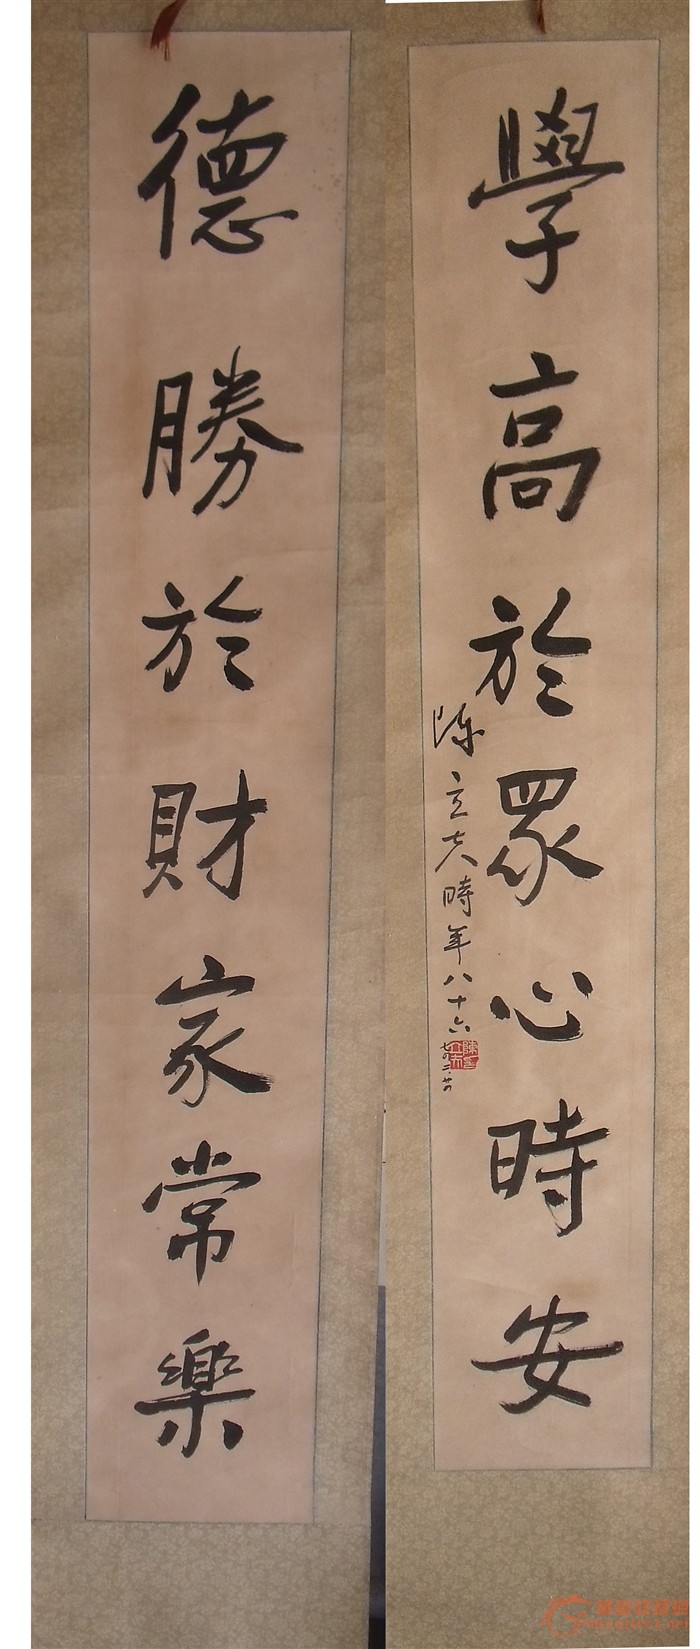 學高於眾心時安
陳立夫時年八十六
七四、二、廿八
德勝於財家常樂